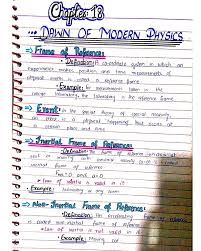 Chapter: 18
DAWN OF MODERN PHYSICS
⇒ Frame of Reference:
• Definition: A co-ordinate system in which an
experimenter makes position and time measurements of
physical events is called a reference frame.
• Example: for measurements taken in the
college laboratory, the laboratory is the reference frame.
⇒ Event: In the special theory of special relativity,
an event is a physical happening that occurs at
a certain place and time.
⇒ Inertial Frame of Reference:
• Definition: The frame of reference
or moving with uniform velocity
is called inertial frame of reference
a = 0
• Law of inertia is valid in it
• Example: laboratory or any room
⇒ Non-Inertial Frame of Reference:
• Definition: An accelerating frame of reference
is called non-inertial frame of reference.
• Law of inertia is not valid in it
• Example: Moving car